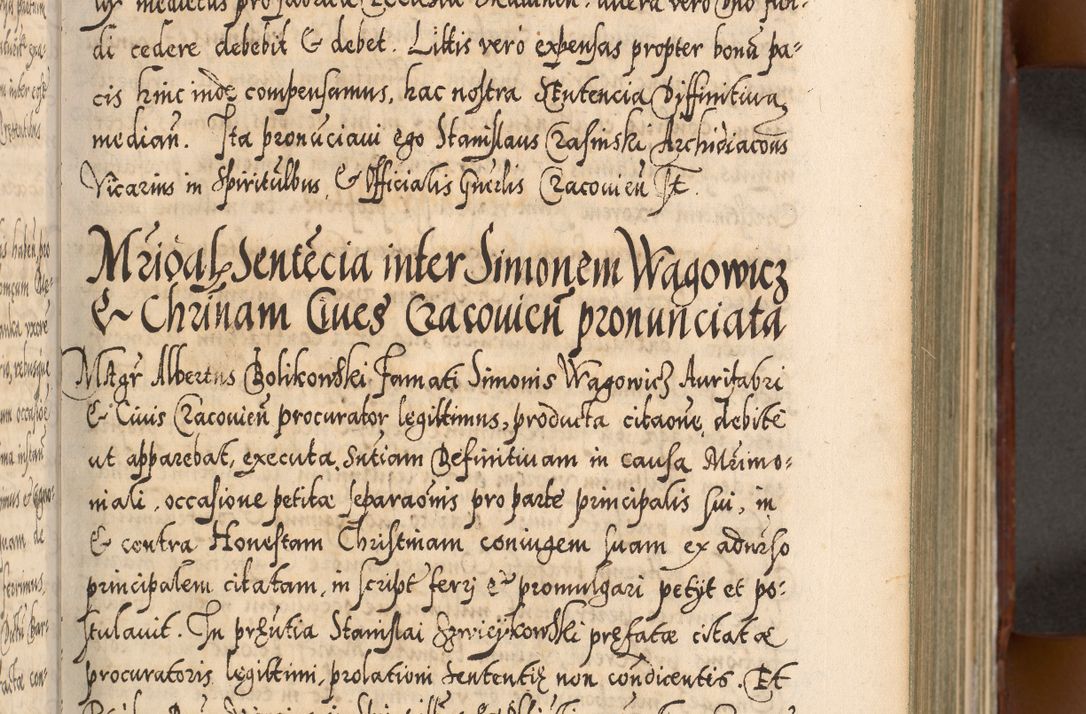 di cedere debebit & debet. Littis verò expensas propter bonū pa=
cis hinc indę compensamus, hac nostra Sentencia Diffinitiua
median̄. Ita pronūciaui ego Stanislaus Crasinski Archidiacons
Vicarius in Spiritūlbus & Officialis Gn̄rlis Cracouien̄ st.
Mr̄ioal Sentēcia inter Simonem Wagowicz
& Chrīnam Ciues Cracouien̄ pronunciata
Magr̄ Albertus Bolikowski Famati Simonis Wagowicz Aurifabri
& Ciuis Cracouien̄ procurator legittimus, producta citaōne debite
ut apparebat, executa, Sn̄tiam Definitiuam in causa Mr̄imo=
niali, occasione petitæ separaōnis pro parte principalis sui, in
& contra Honestam Christinam coniugem suam ex adūrso
principalem citatam, in script ferrj & promulgari petijt et po=
stulauit. In prζn̄tia Stanislai Szwieykowski pręfatæ citatæ
procuratoris legittimi, prolationi Sententię non cōndicentis. Et